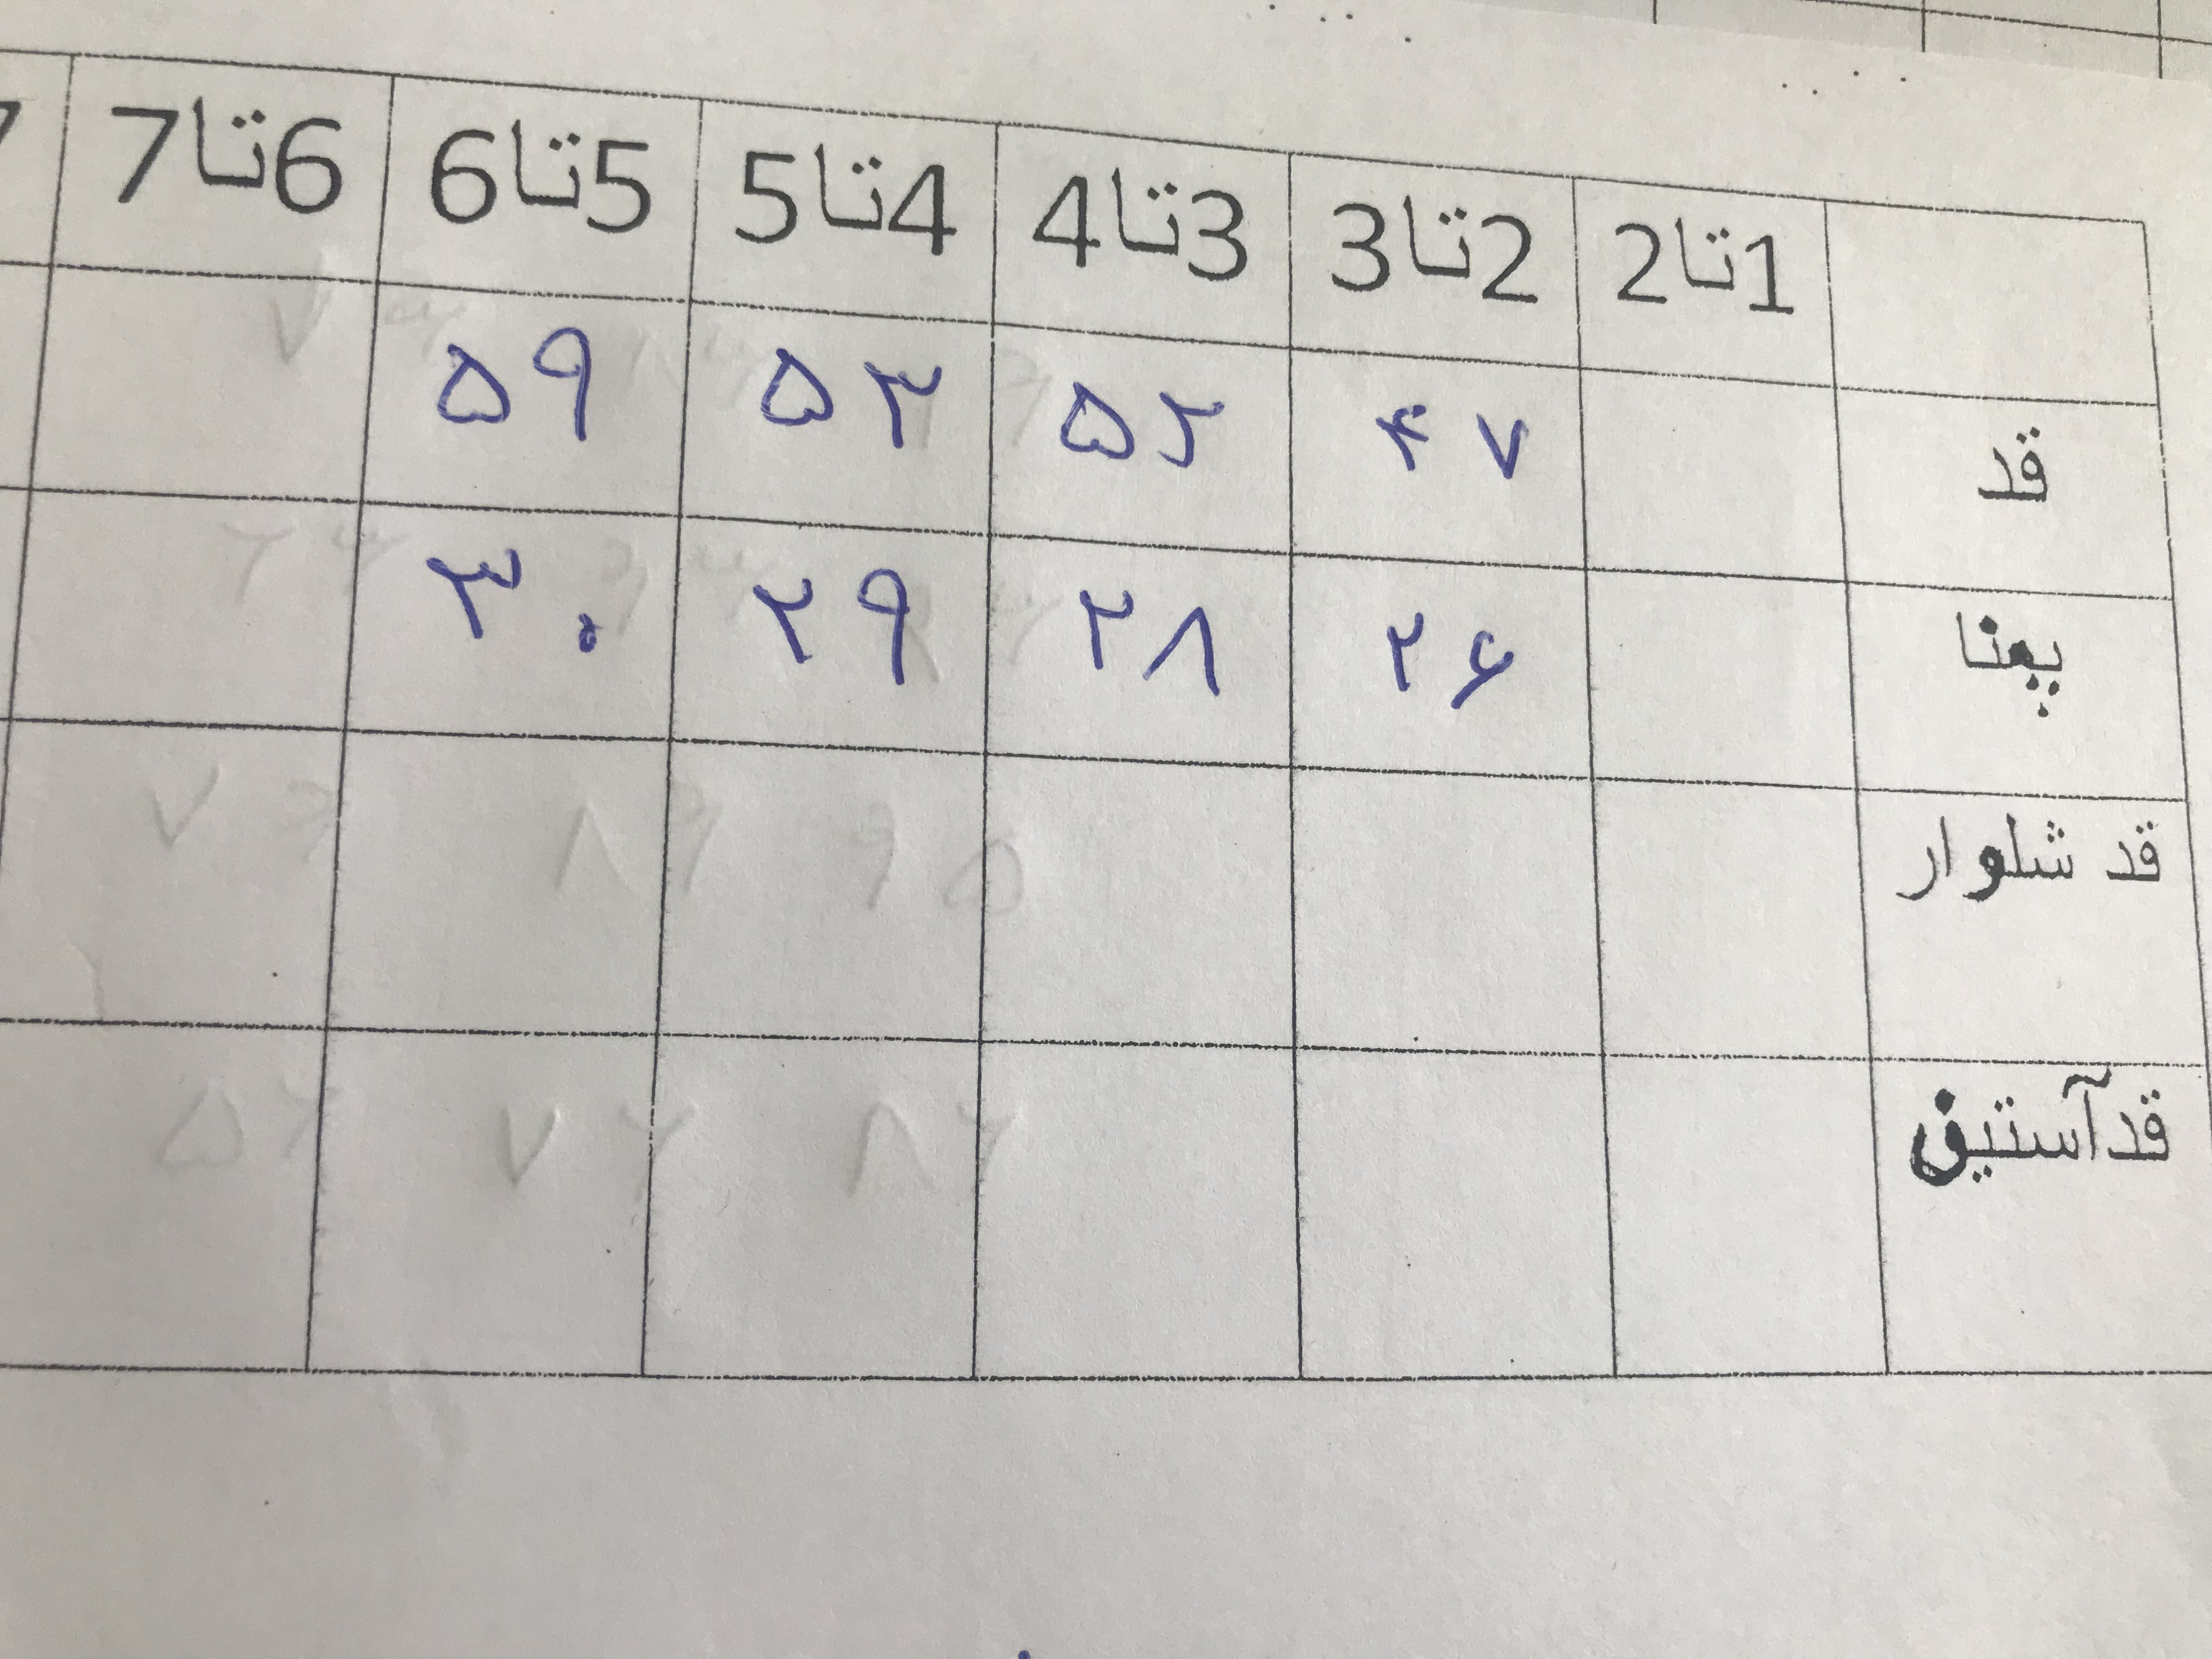 1تا2 2تا3 3تا4 4تا5 5تا6 6تا7 7
قد ۴۷ ۵۲ ۵۳ ۵۹
پهنا ۲۶ ۲۸ ۲۹ ۳۰
قد شلوار
قدآستین